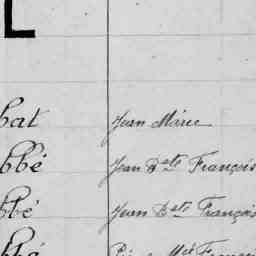 L
bat Jean Marie
bbé Jean Bte François
bbé Jean Bte François